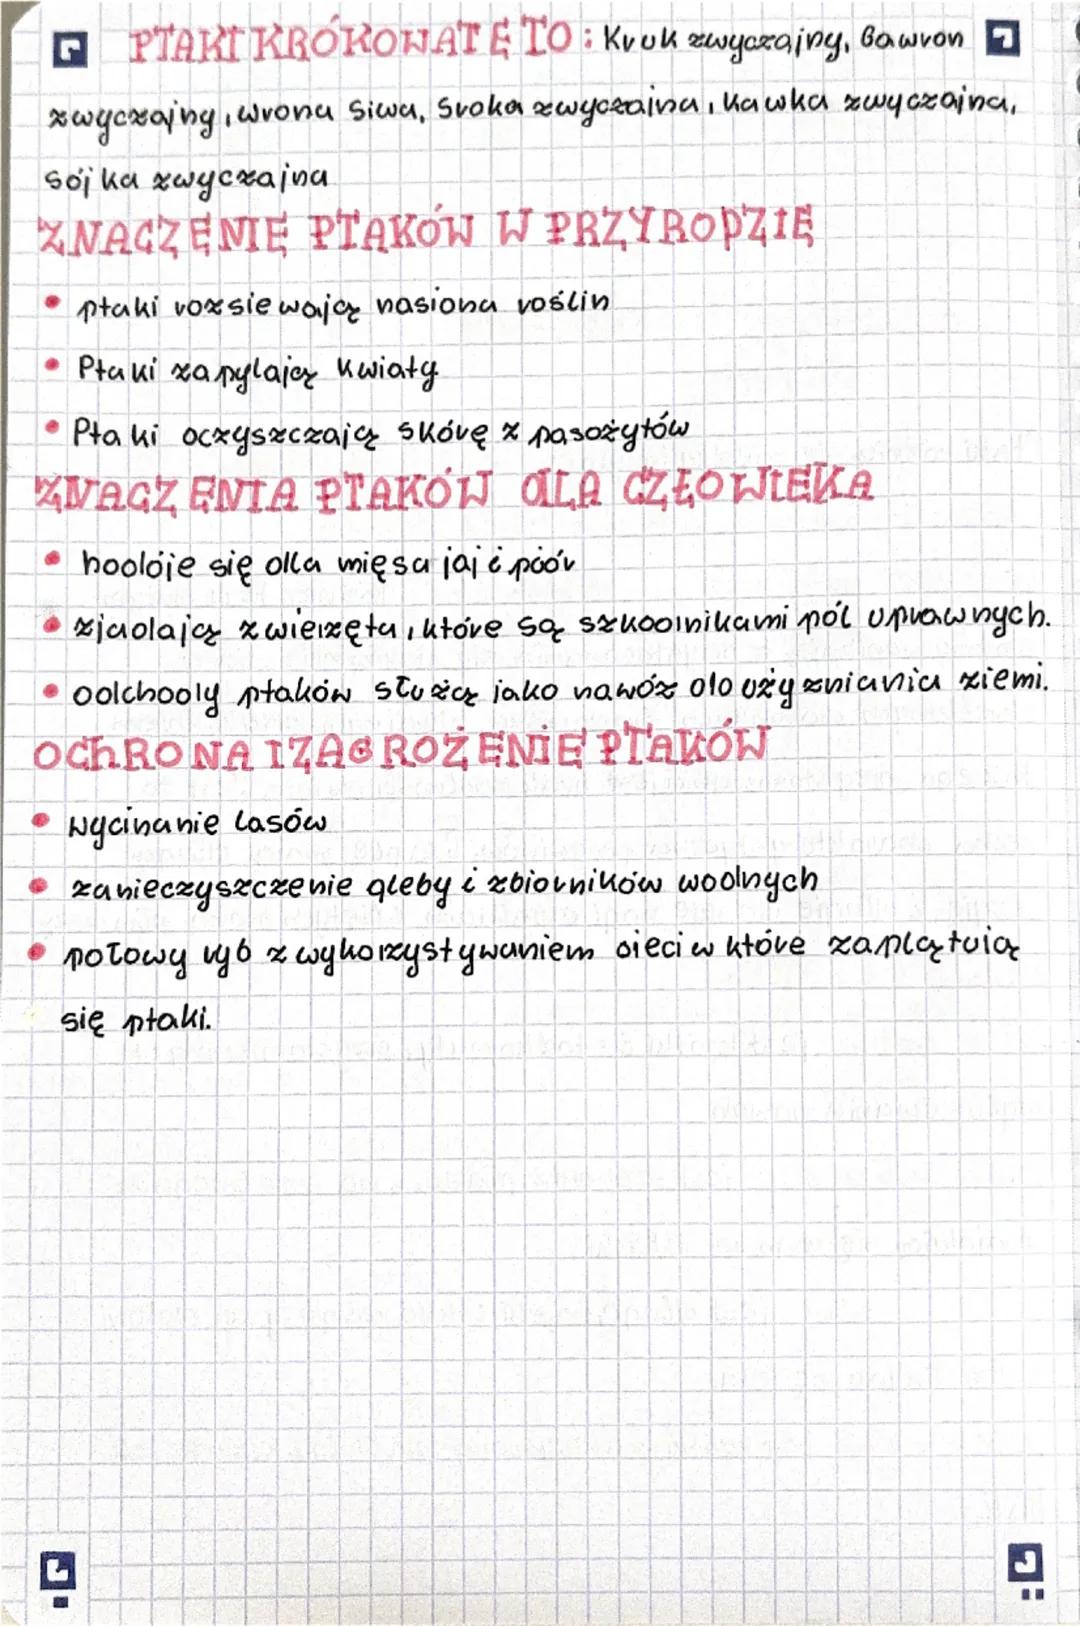 PTAKI KRÓKOWATE TO: Kruk zwyczajny, Gawron
zwyczajny, wrona siwa, Sroka zwyczajna, kawka zwyczajna,
sójka zwyczajna
ZNACZENIE PTAKÓW W PRZYRODZIE
• ptaki rozsiewają nasiona roślin
• Ptaki zapylają kwiaty
• Ptaki oczyszczają skórę z pasożytów
ZNACZENIA PTAKÓW DLA CZŁOWIEKA
• hodóje się dla mięsa jaj i piór
• zjadają zwierzęta, które są szkodnikami pól uprawnych.
• odchody ptaków służą jako nawóz do użyzniania ziemi.
OCHRONA I ZAGROŻENIE PTAKÓW
• wycinanie lasów
• zanieczyszczenie gleby i zbiorników wodnych
• połowy ryb z wykorzystywaniem sieci w które zaplątują
się ptaki.